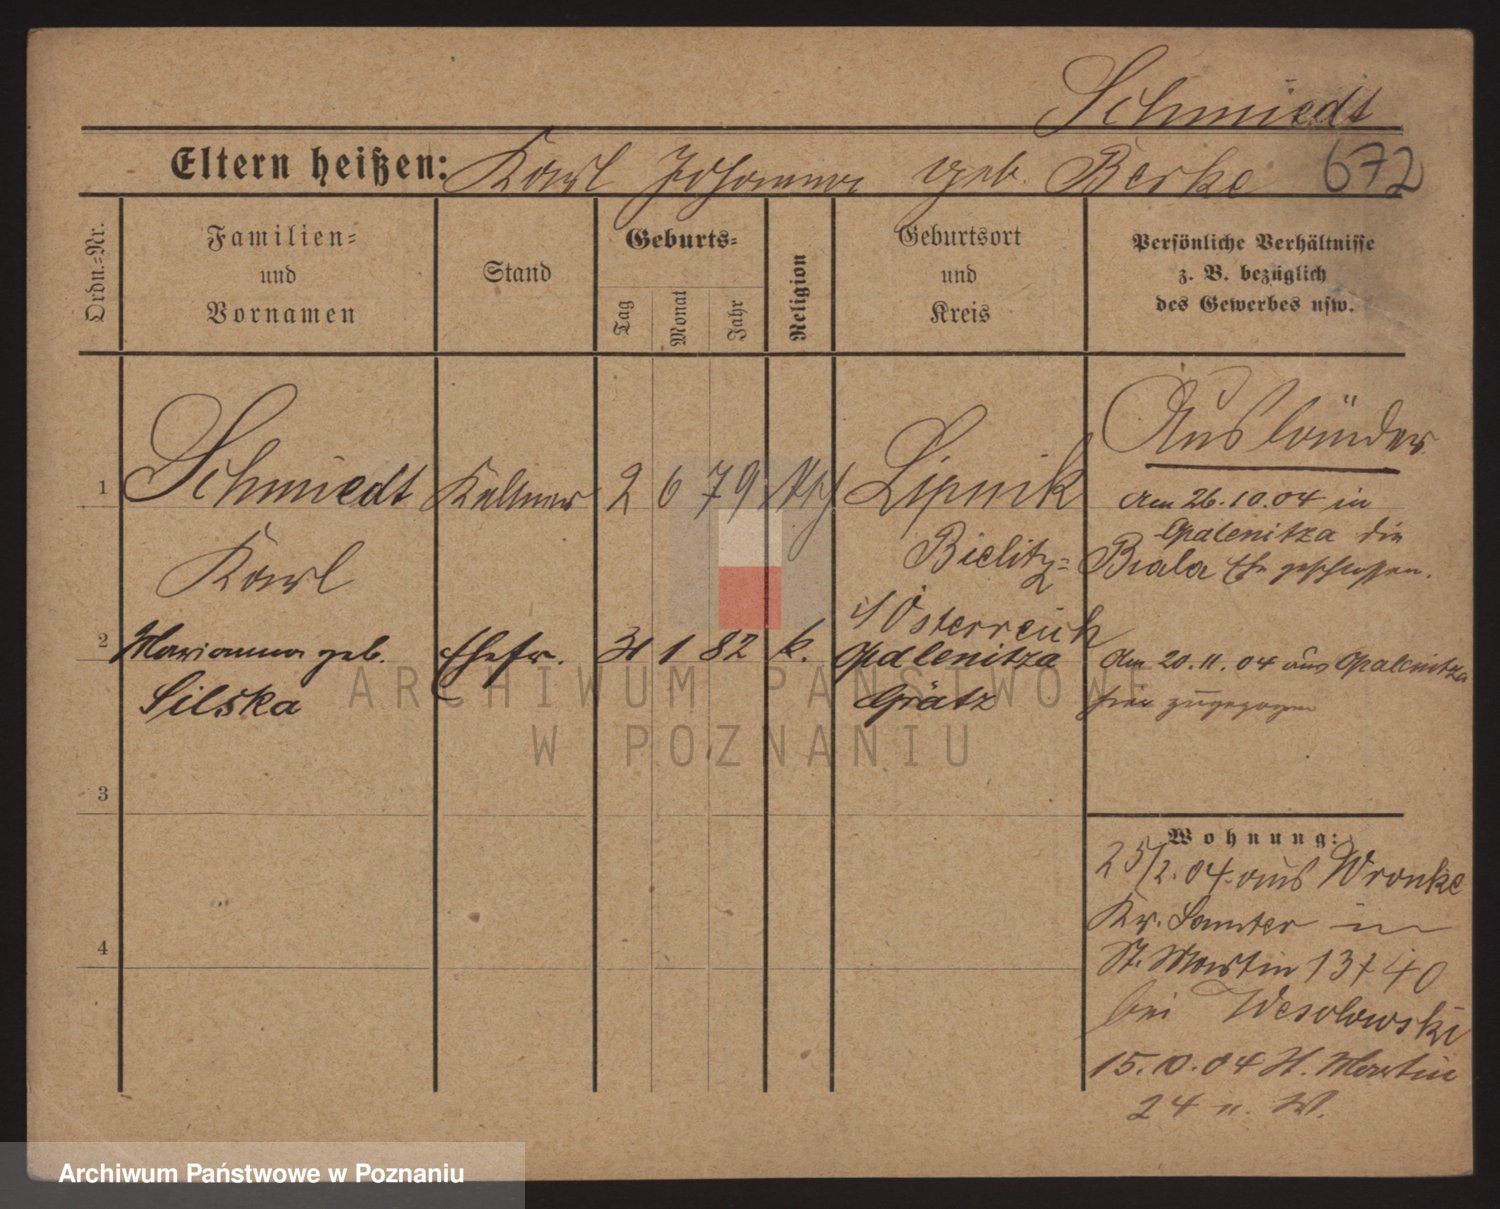 Schmiedt
Eltern heißen: Karl Johanna geb. Berke 672
Ordn.-Nr.
Familien- und Vornamen
Stand
Geburts-
Tag
Monat
Jahr
Religion
Geburtsort und Kreis
Persönliche Verhältnisse z. B. bezüglich des Gewerbes usw.
Ausländer
1 Schmiedt Kellner 2 6 79 Lipnik
Karl
Bielitz-Biala
i/ Österreich
Am 26.10.04 in
Opalenitza die
Ehe geschlossen.
2 Marianna geb. Ehefr. 31 1 82 k. Opalenitza
Silska Grätz
Am 20.11.04 aus Opalenitza
hier zugezogen
3
4
Wohnung:
25/2.04. aus Wronke
Kr. Samter in
St. Martin 13 40
bei Wesolowski
15.10.04 St. Martin
24 n. W.
ARCHIWUM PAŃSTWOWE
W POZNANIU
Archiwum Państwowe w Poznaniu